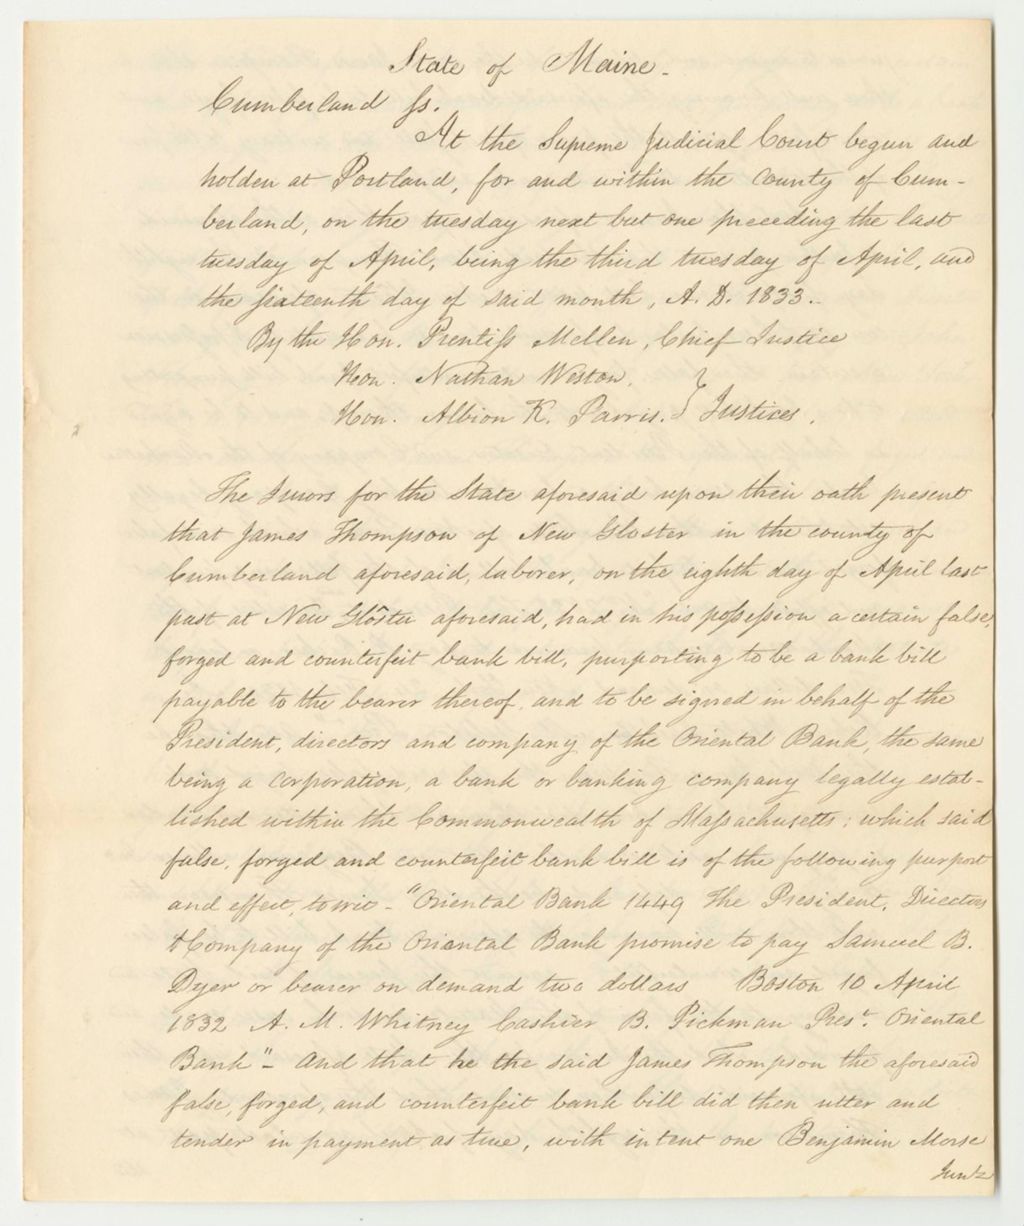 State of Maine.
Cumberland ss.
At the Supreme Judicial Court begun and
holden at Portland, for and within the county of Cum-
berland, on the tuesday next but one preceding the last
tuesday of April, being the third tuesday of April, and
the sixteenth day of said month, A. D. 1833.
By the Hon. Prentiss Mellen, Chief Justice
Hon. Nathan Weston,
Hon. Albion K. Parris. } Justices.
The Jurors for the State aforesaid upon their oath present
that James Thompson of New Gloster in the county of
Cumberland aforesaid, laborer, on the eighth day of April last
past at New Gloster aforesaid, had in his possession a certain false,
forged and counterfeit bank bill, purporting to be a bank bill
payable to the bearer thereof, and to be signed in behalf of the
President, directors and company of the Oriental Bank, the same
being a corporation, a bank or banking company legally estab-
lished within the Commonwealth of Massachusetts; which said
false, forged and counterfeit bank bill is of the following purport
and effect, to wit - "Oriental Bank 1449 The President, Directors
& Company of the Oriental Bank promise to pay Samuel B.
Dyer or bearer on demand two dollars Boston 10 April
1832 A. M. Whitney Cashier B. Pickman Prest. Oriental
Bank" - And that he the said James Thompson the aforesaid
false, forged, and counterfeit bank bill did then utter and
tender in payment as true, with intent one Benjamin Morse